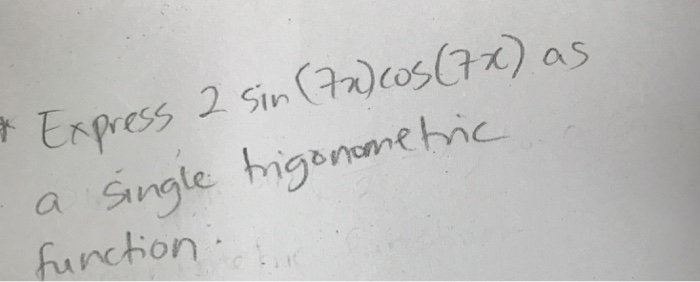 * Express 2 sin(7x)cos(7x) as
a single trigonometric
function.